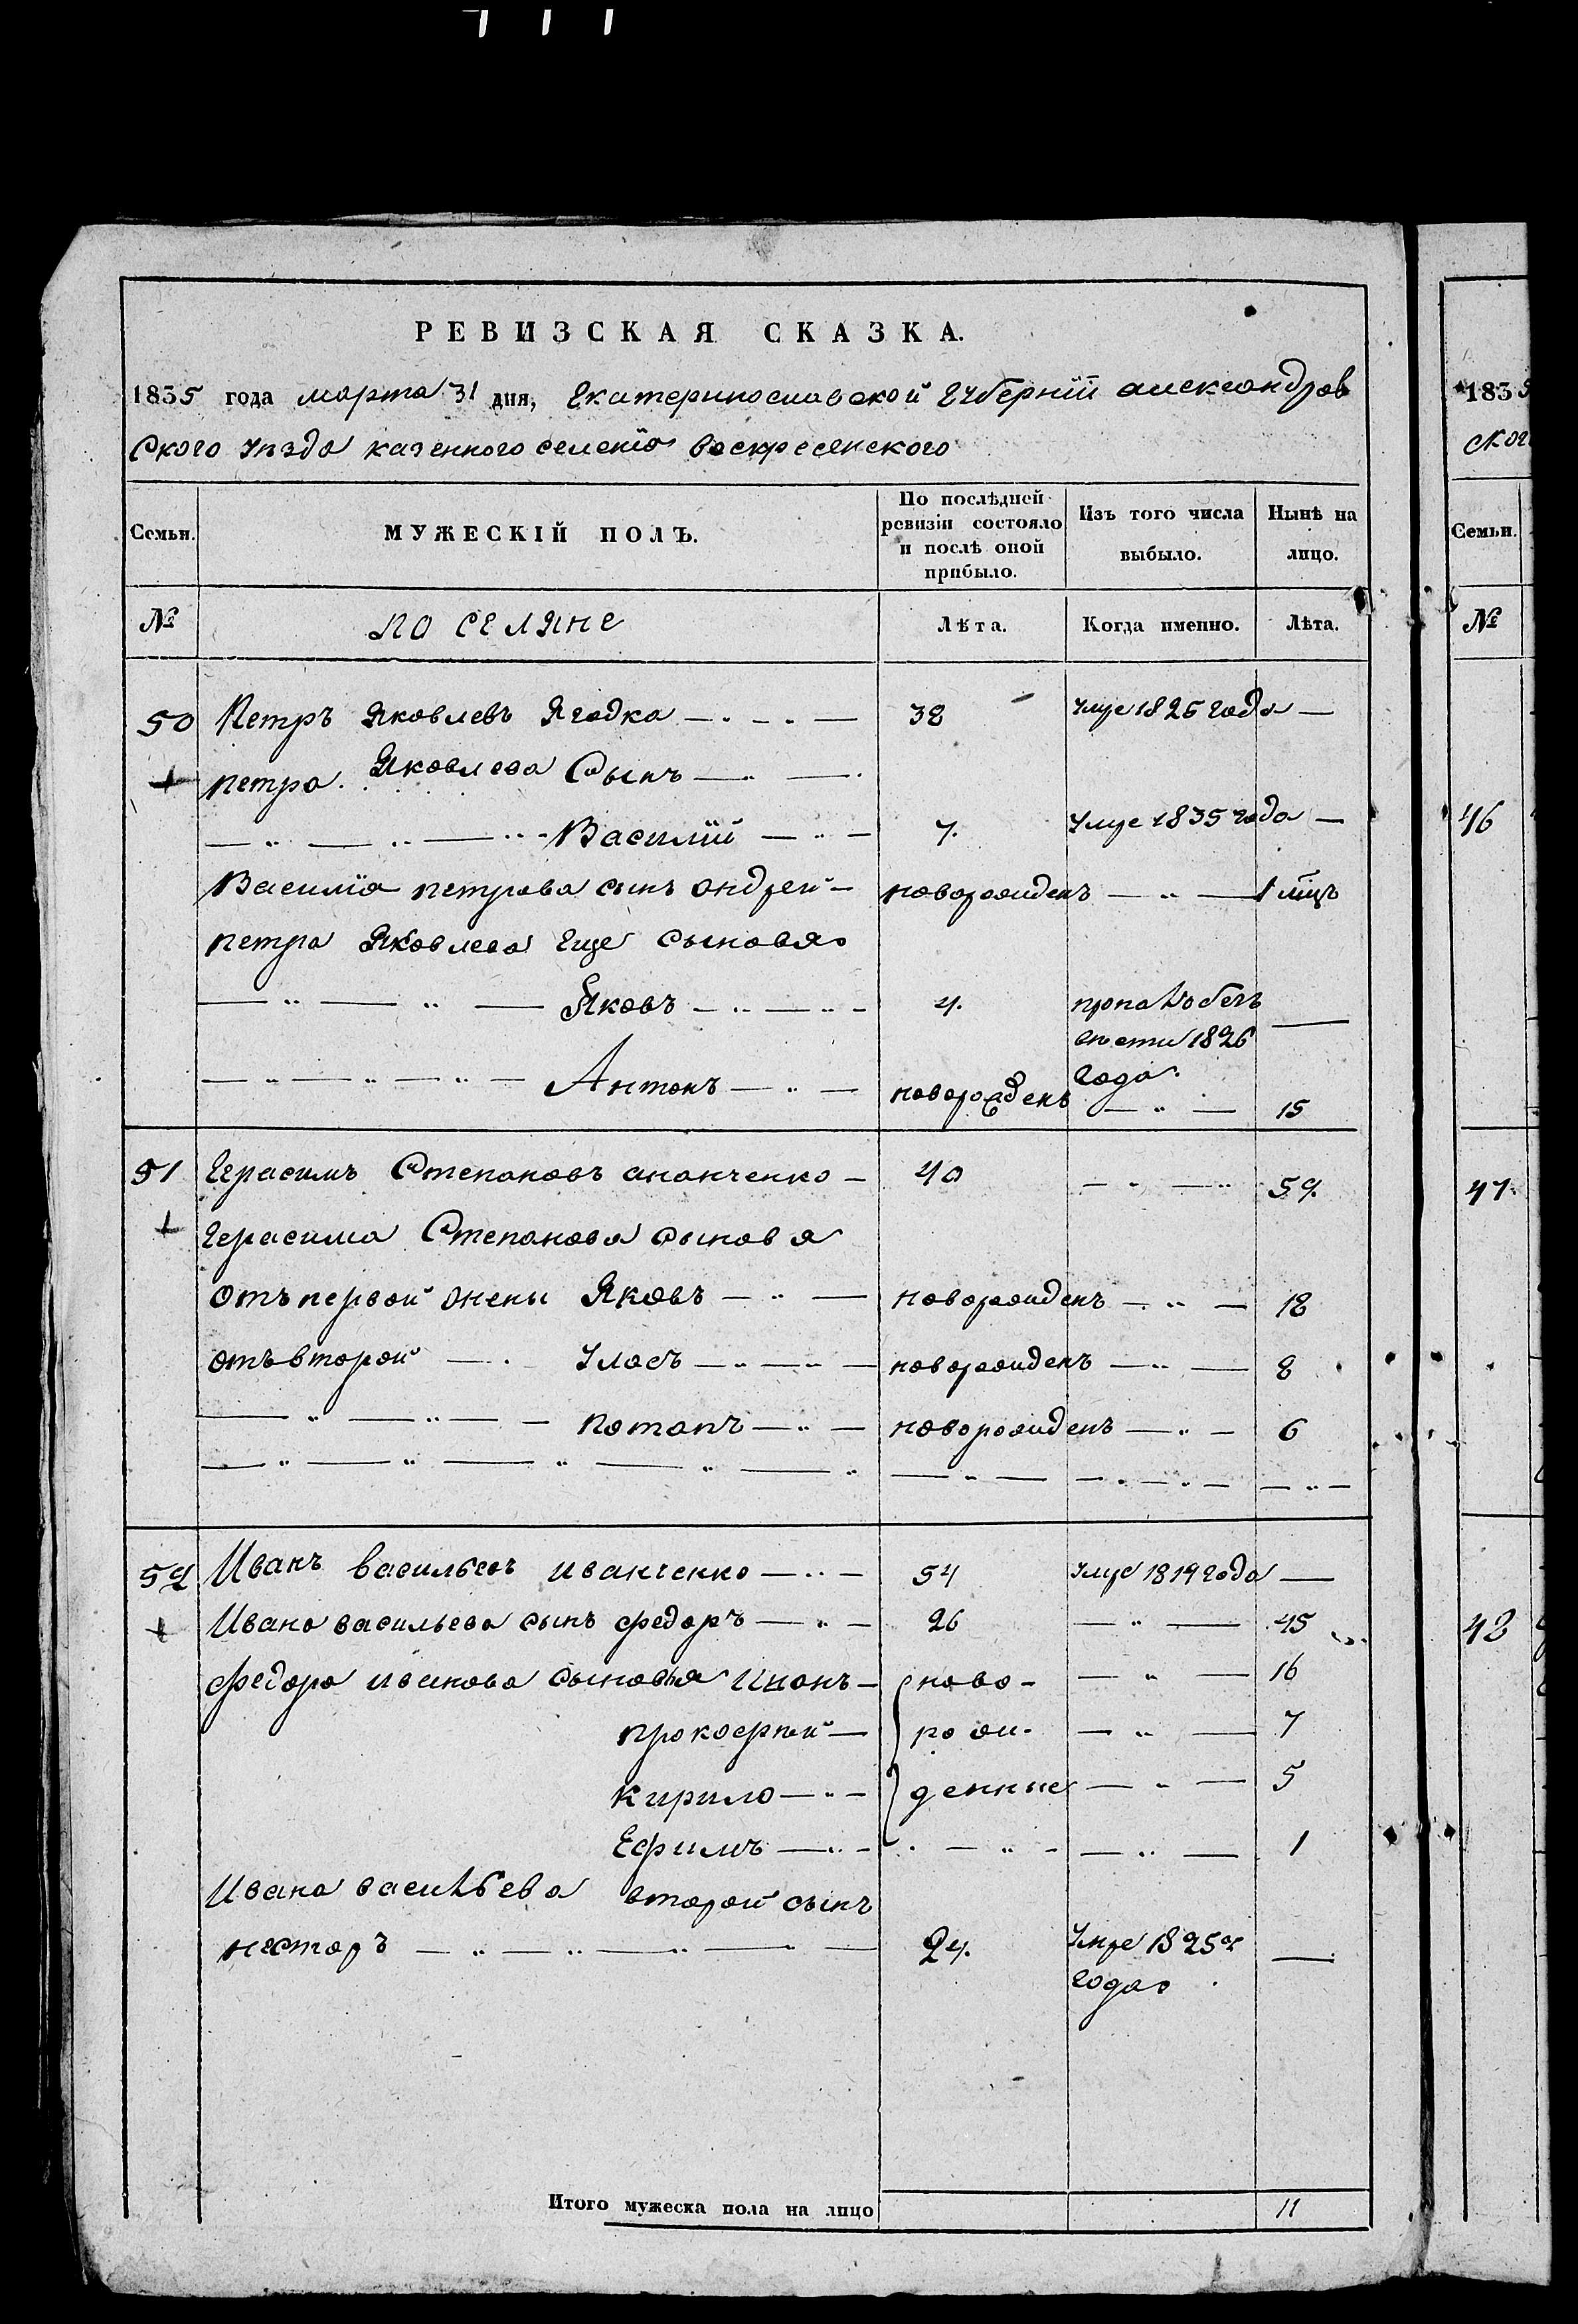 РЕВИЗСКАЯ СКАЗКА.
1835 года марта 31 дня, Екатеринославской Губернїй александров
ского уѣзда казенного селенїя воскресенского
Семьи. МУЖЕСКІЙ ПОЛЪ. По послѣдней ревизіи состояло и послѣ оной прибыло. Изъ того числа выбыло. Нынѣ на лицо.
№ поселяне Лѣта. Когда именно. Лѣта.
50 Петръ Яковлевъ Ягодка 38 Умре 1825 года
петра Яковлева Сынъ
Василїй 7. Умре 1835 года
Василїя петрова сынъ андрей новорожденъ 1 мцъ
петра Яковлева Еще сыновя
Яковъ 4. пропа въ бегъ
года
Антонъ новорожденъ 15
51 Герасимъ Степановъ ананченко 40 59.
Герасима Степанова сыновя
отъ первой жены Яковъ новорожденъ 18
отъ второй Уласъ новорожденъ 8
потапъ новорожденъ 6
52 Иванъ васильевъ иванченко 54 Умре 1819 года
Ивана васильева сынъ федоръ 26 45
федора иванова сыновья ново- 16
прокофтий рож- 7
кирило денные 5
Ефимъ 1
Ивана васильева второй сынъ
несторъ 24. Умре 1825г
года
Итого мужеска пола на лицо 11
1835
ског
Семьи.
№
46
47
48